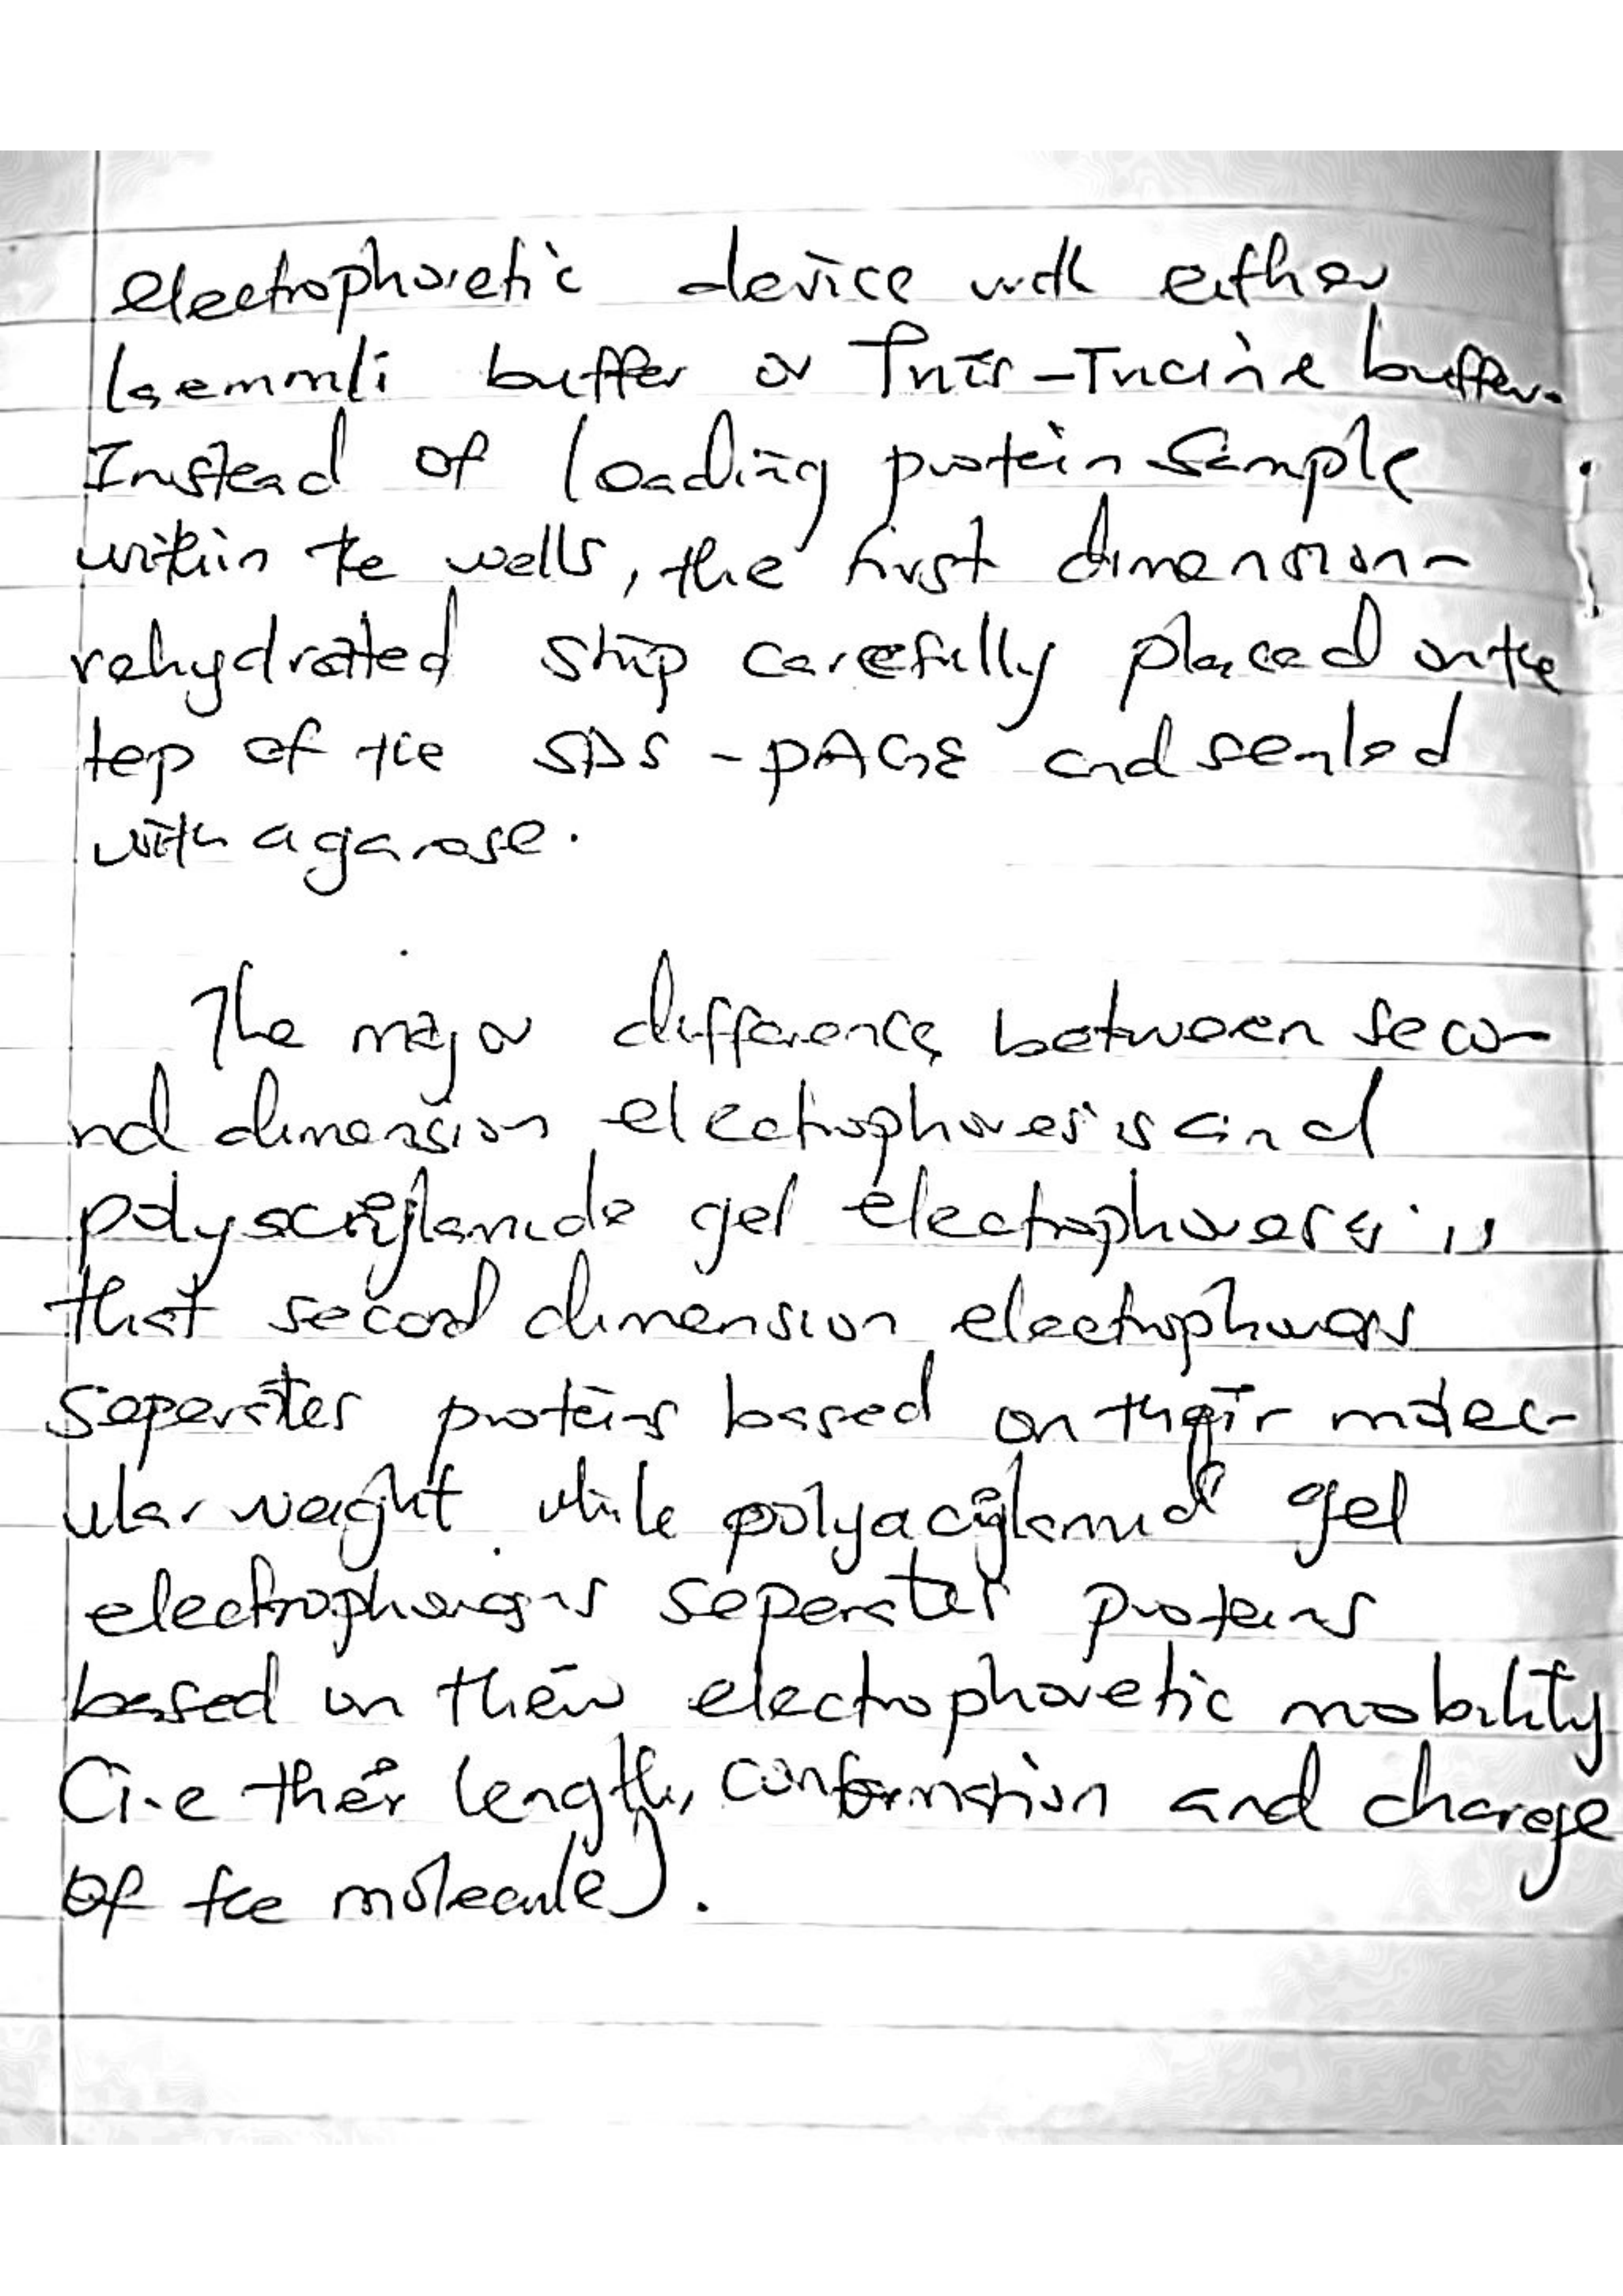 electrophoretic device with either
laemmli buffer or Tris-Tricine buffer.
Instead of loading protein sample
within the wells, the first dimension-
rehydrated strip carefully placed on the
top of the SDS-PAGE and sealed
with agarose.
The major difference between seco-
nd dimension electrophoresis and
polyacrylamide gel electrophoresis is
that second dimension electrophoresis
seperates proteins based on their molec-
ular weight. while polyacrylamid gel
electrophoresis seperates proteins
based on their electrophoretic mobility
(i.e their length, conformation and charge
of the molecule).